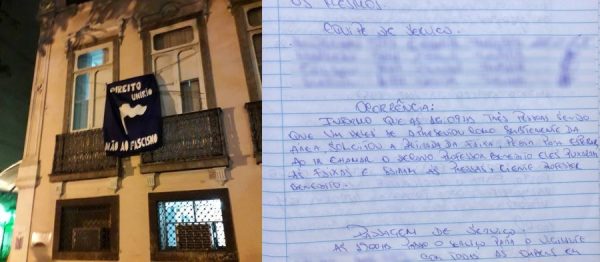 DIREITO
UNIRIO
NÃO AO FASCISMO
OS MESMOS.
EQUIPE DE SERVIÇO.
OCORRÊNCIA:
INFORMO QUE AS TRÊS PESSOAS SENDO
QUE UM DELES SE APRESENTOU COMO DA
ÁREA SOLICITOU A RETIRADA DA FAIXA, PARA ESPERAR
AO IR CHAMAR O DECANO PROFESSOR BENEDITO ELES PUXARAM
AS FAIXAS E SAIRAM AS PRESSAS, CIENTE PROFESSOR
BENEDITO.
PASSAGEM DE SERVIÇO.
AS PASSO O SERVIÇO PARA O VIGILANTE
COM TODAS AS CHAVES EM